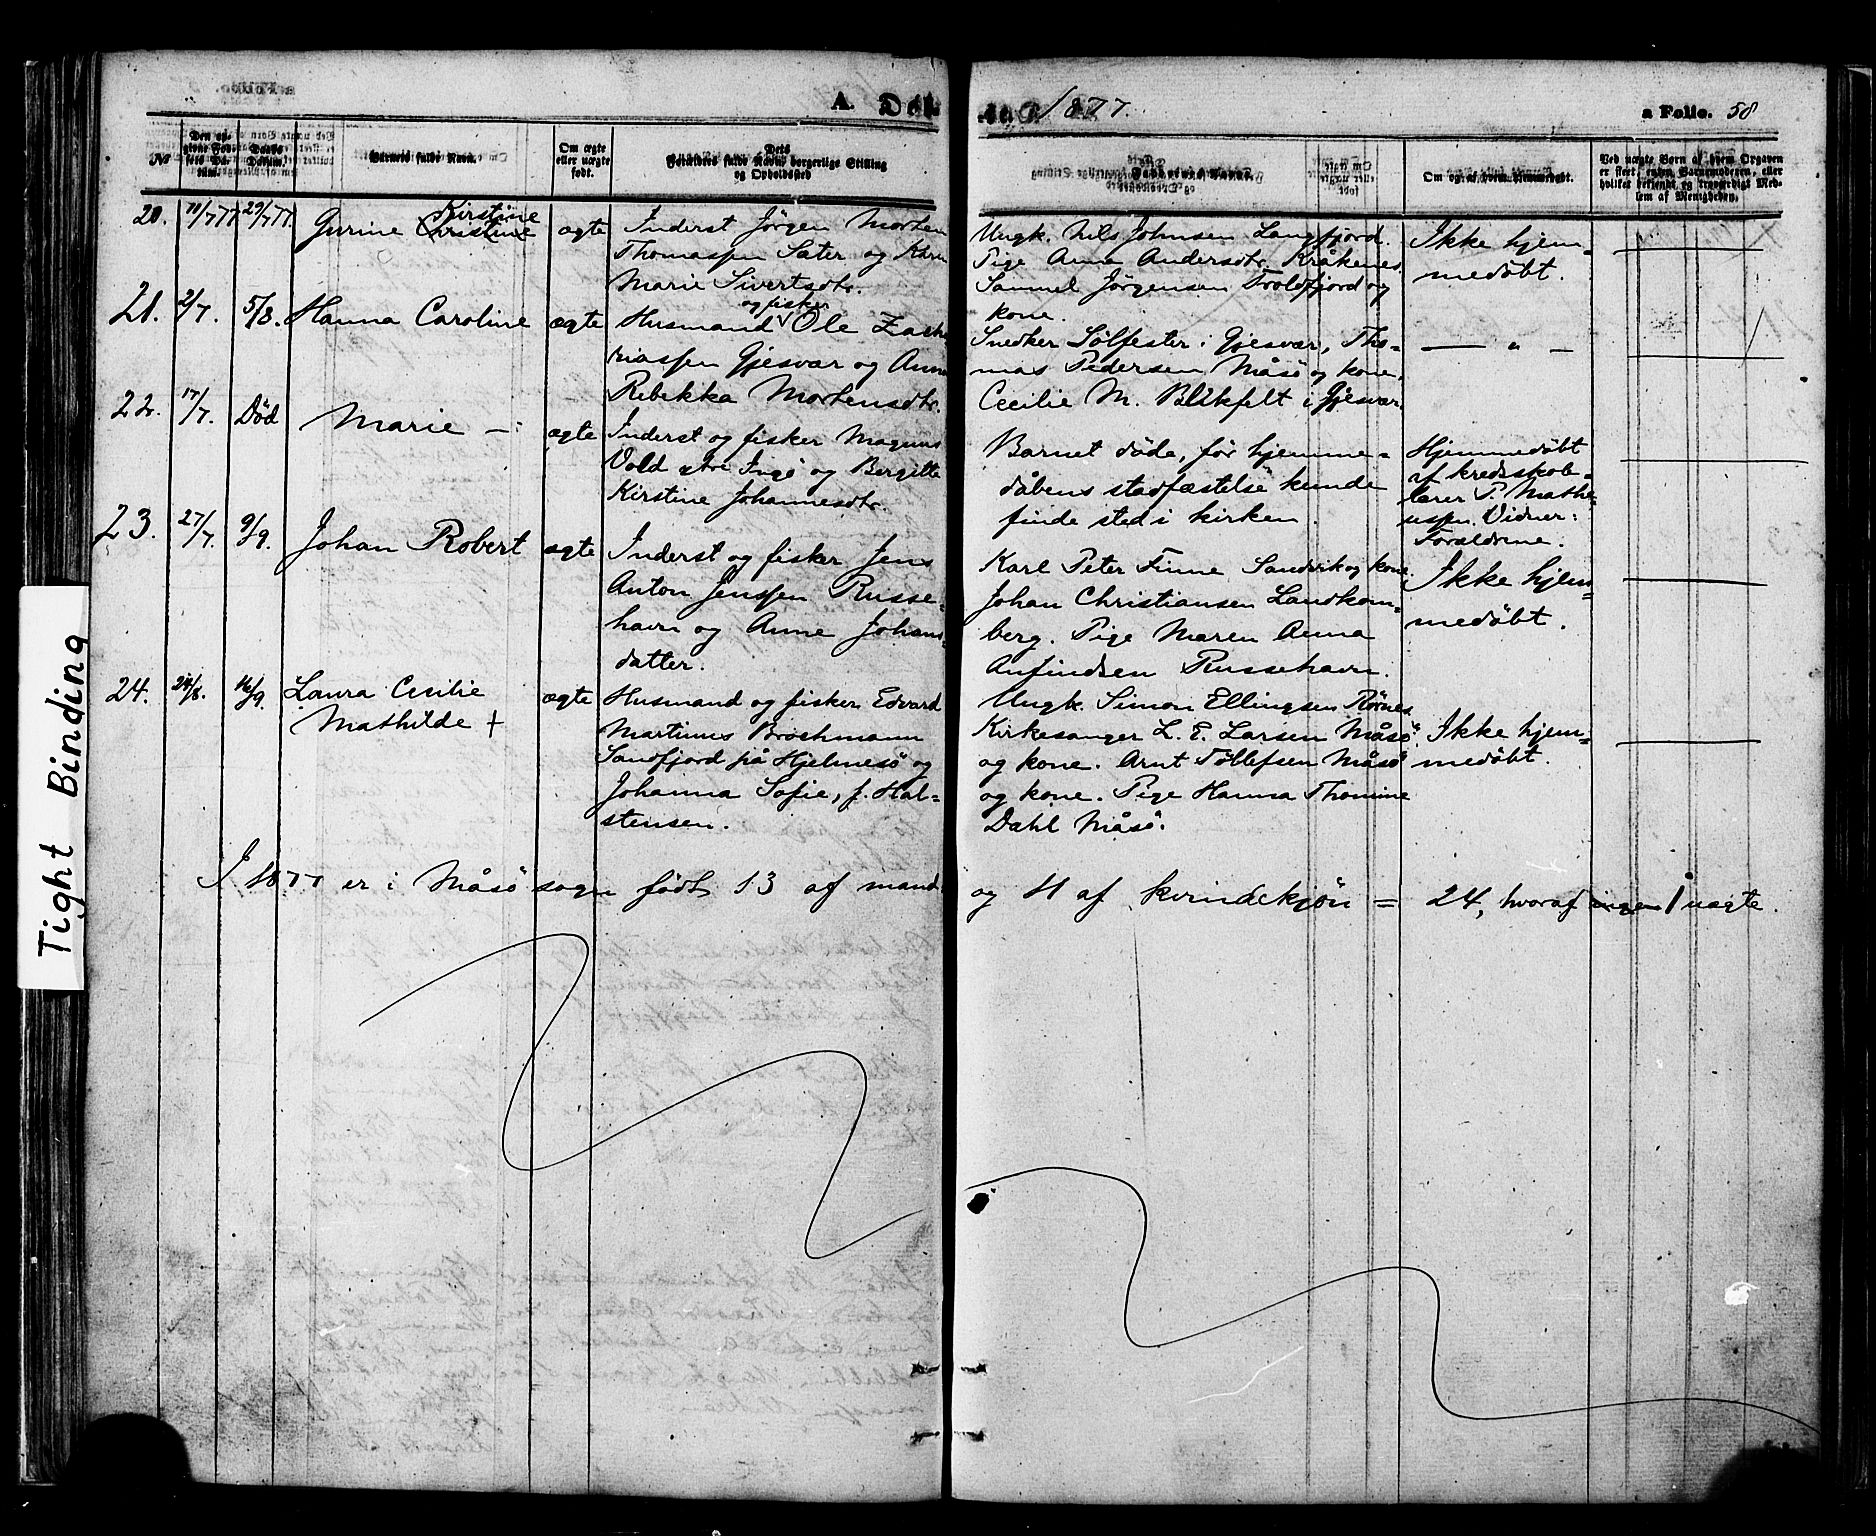 A. Døb
1877.
a Folio. 58
№
Daabs Datum.
Barnets fulde Navn.
Om ægte eller uægte født.
Forældres fulde Navn borgerlige Stilling og Opholdssted
Faddernes Navne
Om og af hvem hjemmedøbt.
20. 11/7 77 29/7 77. Gurine Christine Kirstine ægte Inderst Jörgen Morten
Thomassen Sæter og Karen
Marie Sivertsdtr.
Ungk. Nils Johnsen Langfjord.
Pige Anne Andersdtr. Kråkenes.
Samuel Jörgensen Troldfjord og
kone.
Ikke hjem-
medöbt.
21. 2/7. 5/8. Hanna Caroline ægte Husmand og fisker Ole Zacha
riassen Gjesvær og Anne
Rebekka Mortensdtr.
Snedker Sölfester i Gjesvær, Tho-
mas Pedersen Måsö og kone,
Cecilie M. Blikfelt i Gjesvær.
— " —
22. 17/7. Död Marie – ægte Inderst og fisker Magnus
Vold Ingö og Bergitte
Kirstine Johannesdtr.
Barnet döde, för hjemme-
dåbens stadfæstelse kunde
finde sted i kirken.
Hjemmedöbt
af kredsskole-
lærer P. Mathe-
ussen. Vidner:
Forældrene.
23. 27/7. 9/9. Johan Robert ægte Inderst og fisker Jens
Anton Jenssen Russe-
havn og Anne Johans-
datter.
Karl Peter Finne Sandvik og kone,
Johan Christiansen Landkom-
berg. Pige Maren Anna
Anfindsen Russehavn.
Ikke hjem-
medöbt.
24. 24/8. 16/9. Laura Cecilie
Mathilde + ægte Husmand og fisker Edvard
Martinus Brochmann
Sandfjord på Hjelmesö og
Johanna Sofie, f. Hal-
stensen.
Ungk. Simon Ellingsen Rörnes
Kirkesanger L. E. Larsen Måsö
og kone. Arnt Töllefsen Måsö
og kone. Pige Hanna Thomine
Dahl Måsö.
Ikke hjem-
medöbt.
I 1877 er i Måsö sogn födt 13 af mand- og 11 af kvindekjön = 24, hvoraf ingen 1 uægte.
Tight Binding